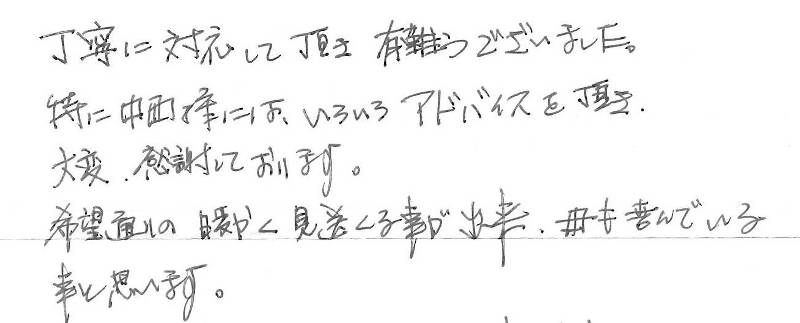 丁寧に対応して頂き有難うございました。
特に中西様には、いろいろアドバイスを頂き、
大変、感謝しております。
希望通りの暖かく見送くる事が出来、母も喜んでいる
事と思います。